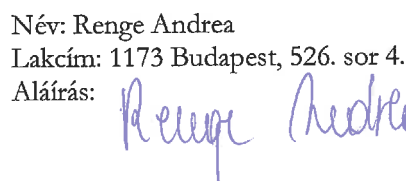 Név: Renge Andrea
Lakcím: 1173 Budapest, 526. sor 4.
Aláírás: Renge Andrea